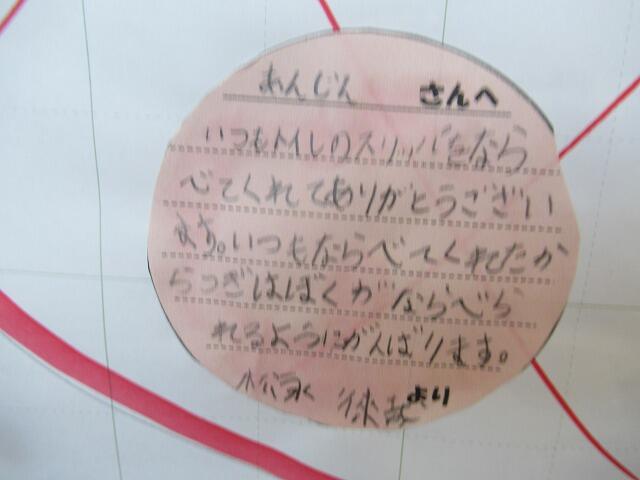 あんじん さんへ
いつもトイレのスリッパをなら
べてくれてありがとうござい
ます。いつもならべてくれたか
らつぎはぼくがならべら
れるようにがんばります。
松永 より